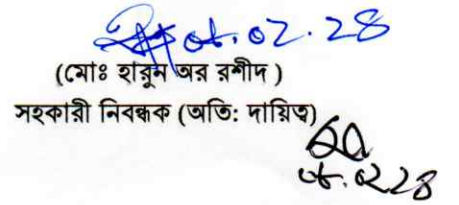 ০৮.০২.২৪
(মোঃ হারুন অর রশীদ )
সহকারী নিবন্ধক (অতি: দায়িত্ব)
০৮.০২২৪